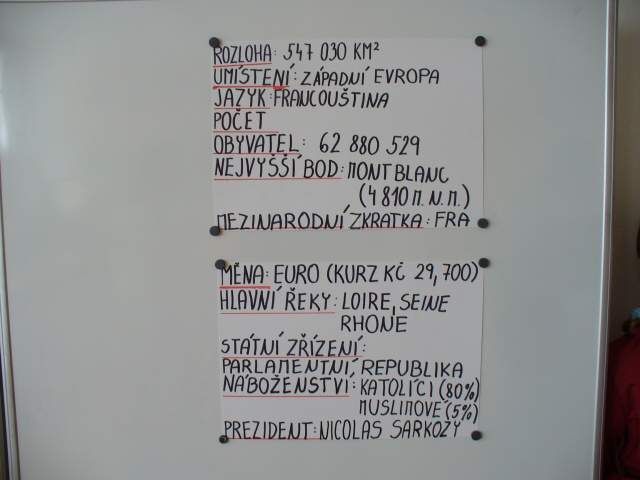 ROZLOHA: 547 030 KM²
UMÍSTENÍ: ZÁPADNÍ EVROPA
JAZYK: FRANCOUŠTINA
POČET
OBYVATEL: 62 880 529
NEJVYŠŠÍ BOD: MONT BLANC
(4 810 M. N. M.)
MEZINARODNÍ ZKRATKA: FRA
MĚNA: EURO (KURZ KČ 29,700)
HLAVNÍ ŘEKY: LOIRE, SEINE
RHONE
STÁTNÍ ZŘÍZENÍ:
PARLAMENTNÍ REPUBLIKA
NÁBOŽENSTVÍ: KATOLÍCI (80%)
MUSLIMOVE (5%)
PREZIDENT: NICOLAS SARKOZY